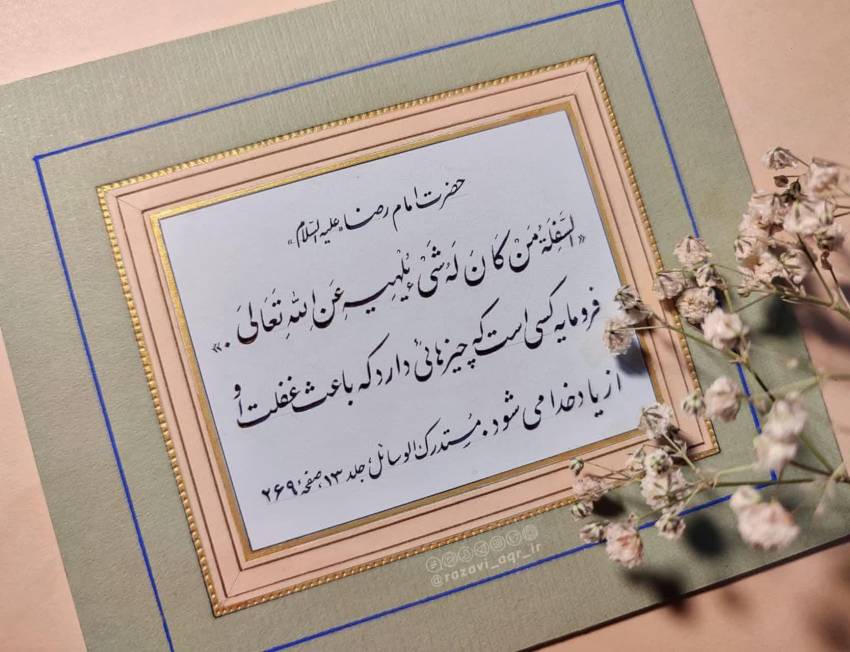 حضرت امام رضا «علیه السّلام»
«السَّفِلَةُ مَنْ كَانَ لَهُ شَىْءٌ يُلْهِيهِ عَنِ اللهِ تَعَالىَ.»
فرومایه کسی است که چیزهائی دارد که باعث غفلت او
از یاد خدا می شود. مُستدرک الوسائل، جلد ۱۳، صفحهٔ ۲۶۹
@razavi_aqr_ir